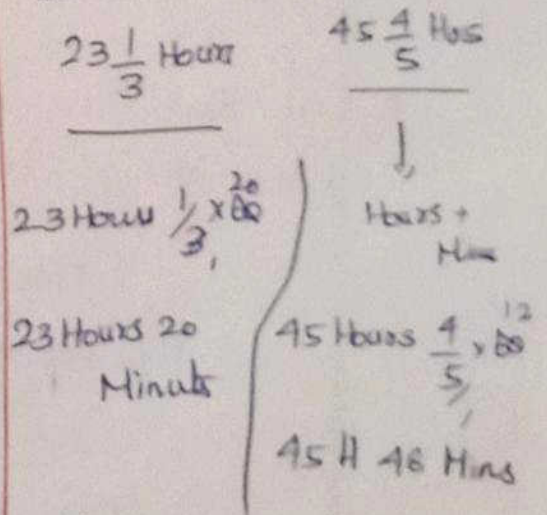 23 1/3 Hours
23 Hours 1/3 × 60 20
23 Hours 20
Minuts
45 4/5 Hrs
Hours +
45 Hours 4/5 × 60 12
45 H 48 Mins